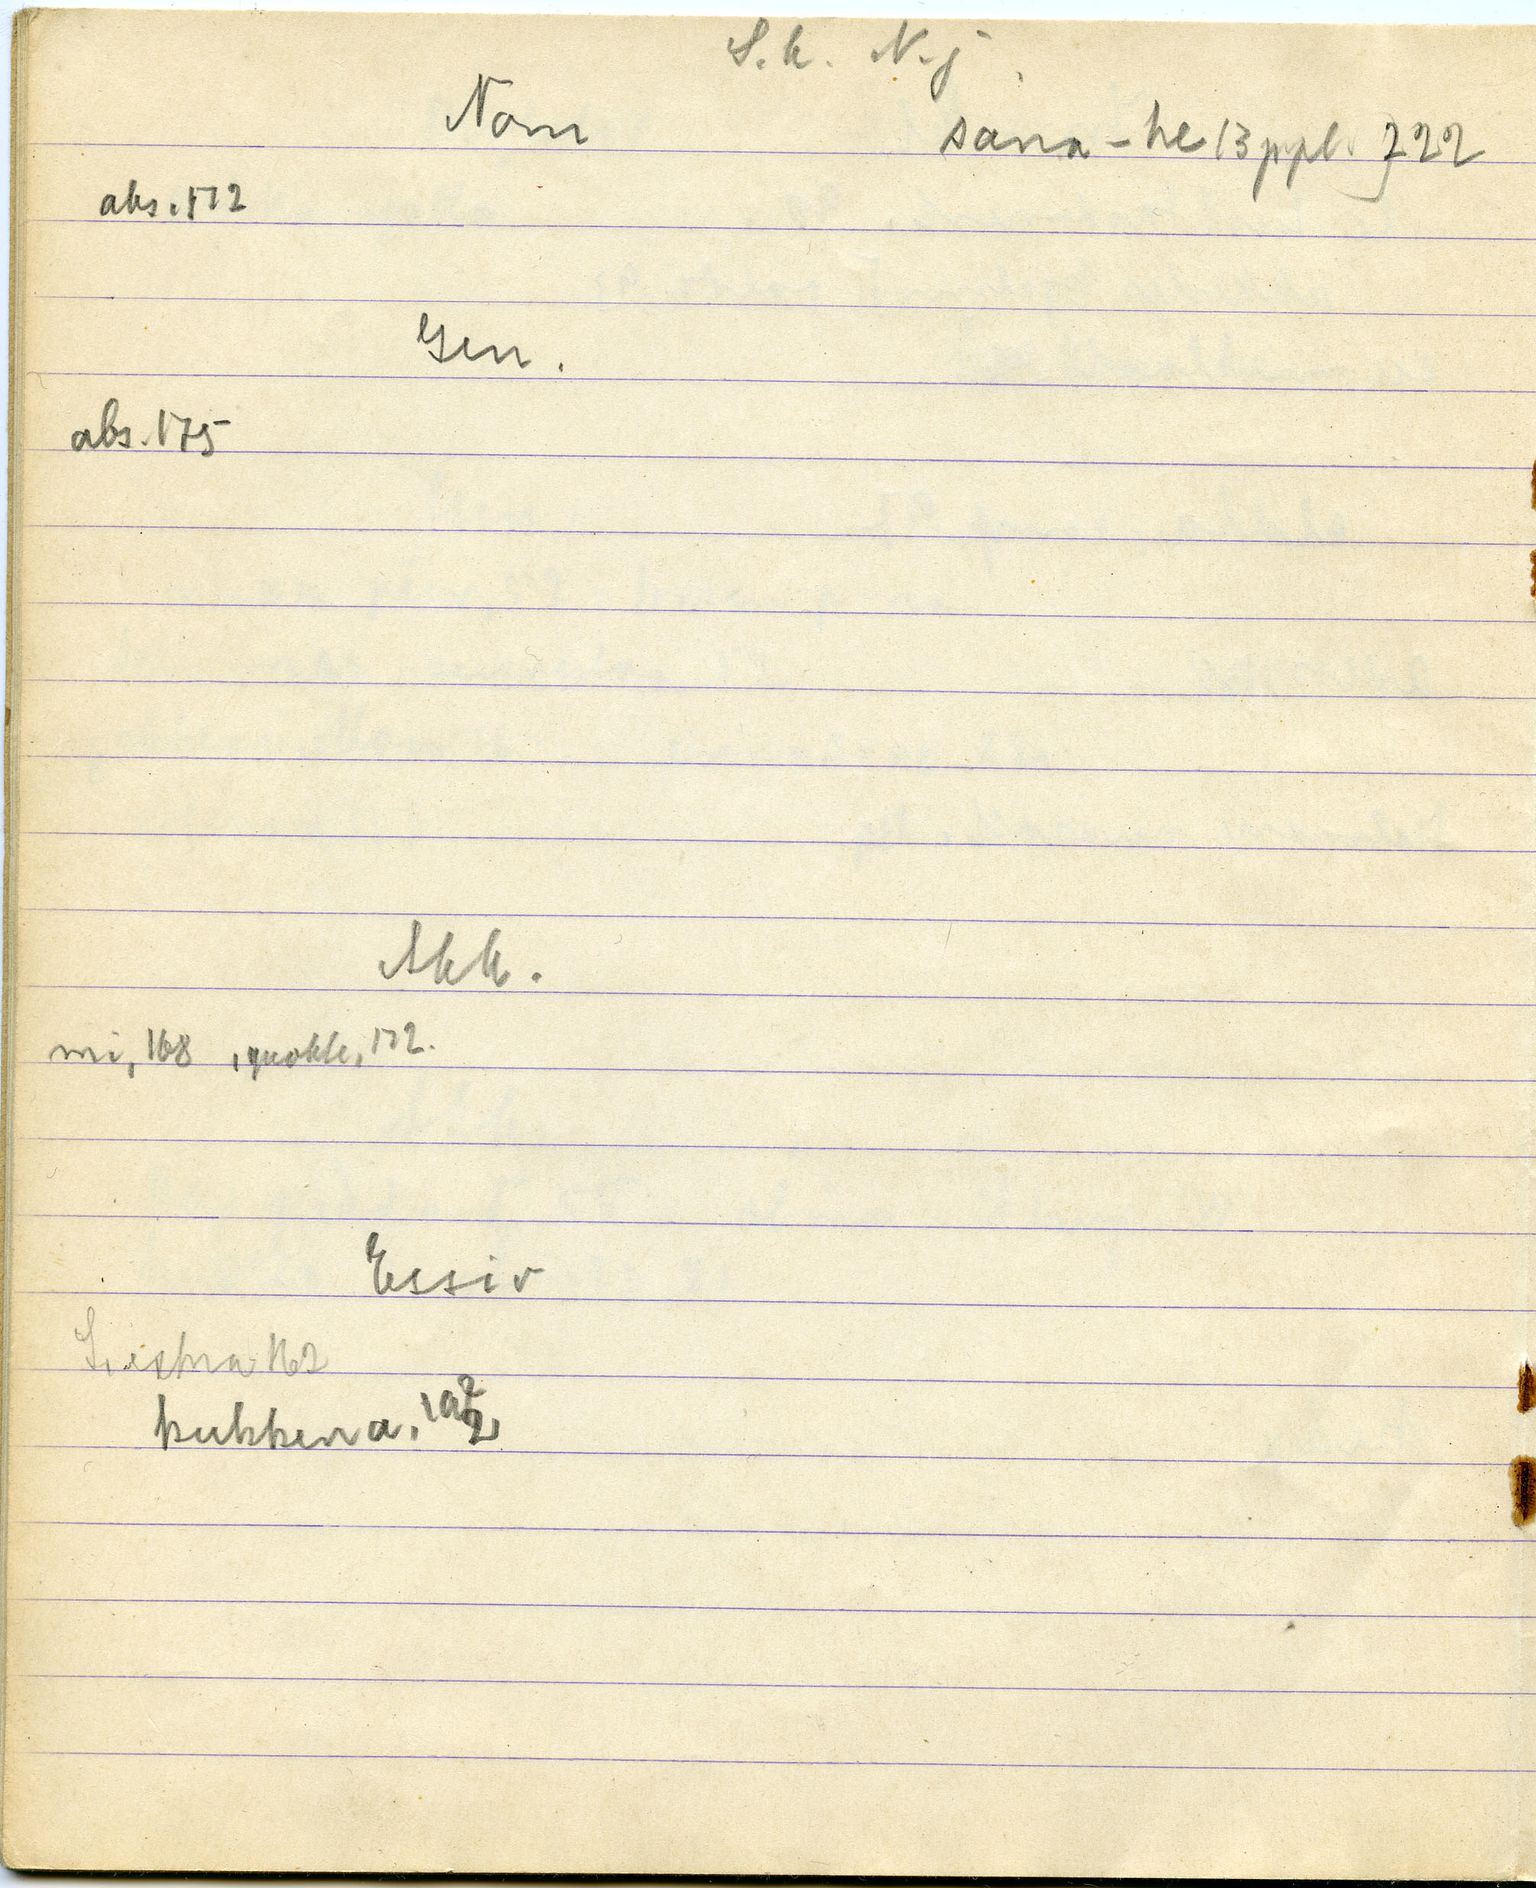 S.k. N.j.
Nom sana - he 13 ppl. 222
abs. 172
Gen.
abs. 175
Akk.
mi, 168, 172.
Essiv
162
kukkena,